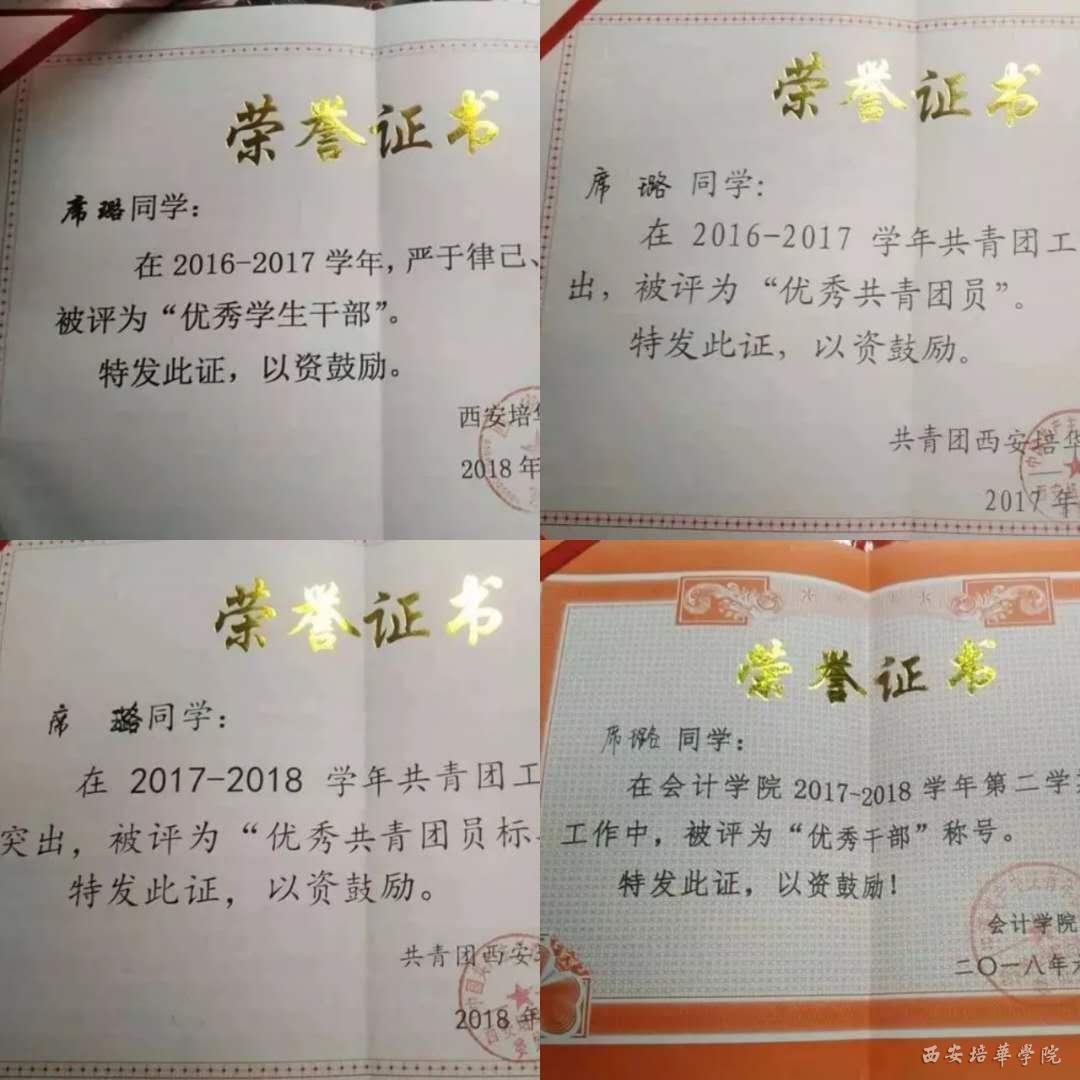 荣誉证书
席璐同学：
在2016-2017学年，严于律己、
被评为“优秀学生干部”。
特发此证，以资鼓励。
西安培华
2018年
荣誉证书
席 璐 同学：
在 2016-2017 学年共青团工
出，被评为“优秀共青团员”。
特发此证，以资鼓励。
共青团西安培华
2017年
荣誉证书
席 璐同学：
在 2017-2018 学年共青团工
突出，被评为“优秀共青团员标
特发此证，以资鼓励。
共青团西安
2018年
荣誉证书
席璐 同学：
在会计学院 2017-2018 学年第二学
工作中，被评为“优秀干部”称号。
特发此证，以资鼓励！
会计学院
二〇一八年六
西安培華学院